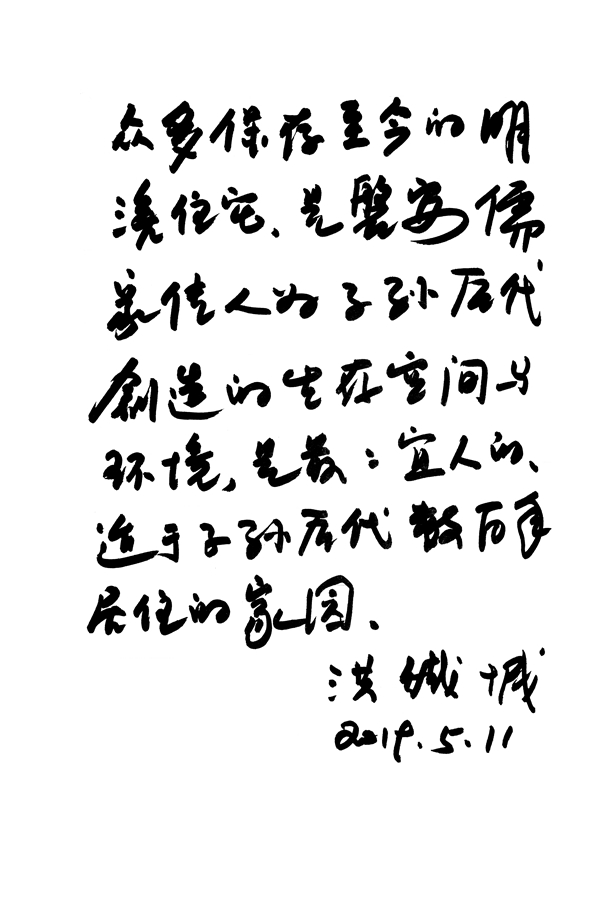 众多保存至今的明
清住宅、是磐安儒
家传人为子孙后代
创造的生存空间与
环境,是最：宜人的、
适于子孙后代数百年
居住的家园、
洪铁城
2019.5.11